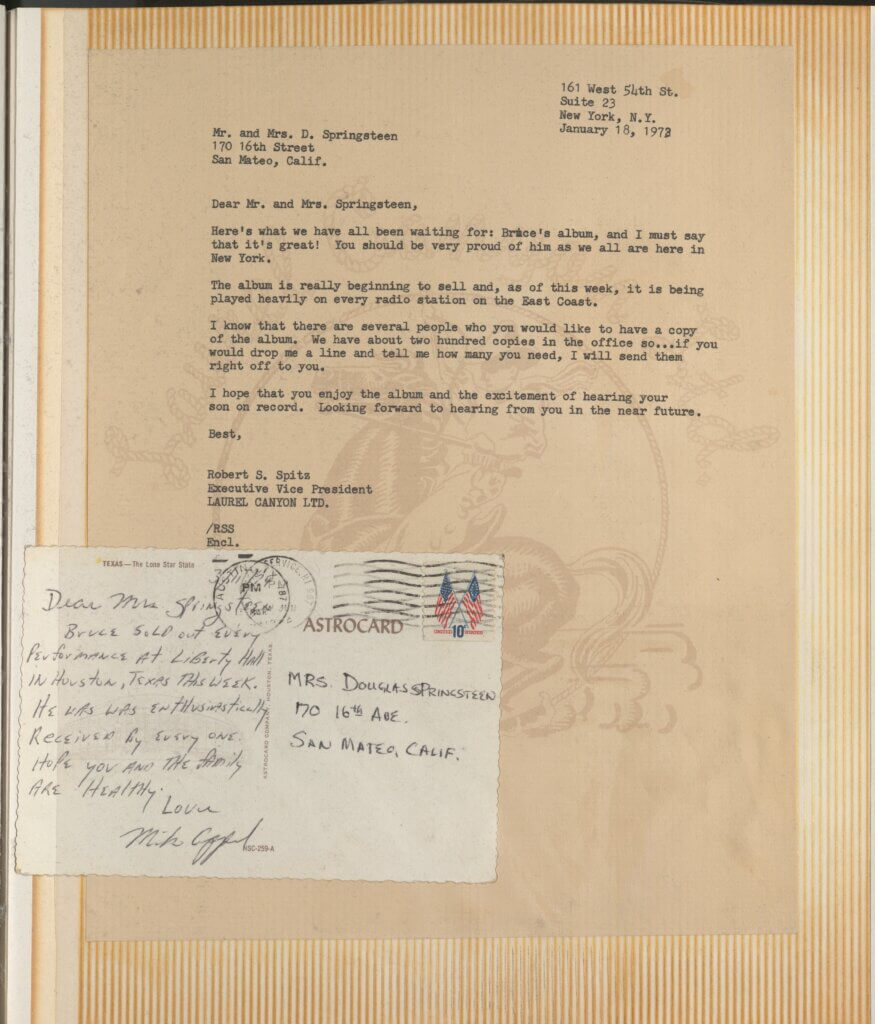 161 West 54th St.
Suite 23
New York, N.Y.
January 18, 1973
Mr. and Mrs. D. Springsteen
170 16th Street
San Mateo, Calif.
Dear Mr. and Mrs. Springsteen,
Here's what we have all been waiting for: Bruce's album, and I must say
that it's great! You should be very proud of him as we all are here in
New York.
The album is really beginning to sell and, as of this week, it is being
played heavily on every radio station on the East Coast.
I know that there are several people who you would like to have a copy
of the album. We have about two hundred copies in the office so...if you
would drop me a line and tell me how many you need, I will send them
right off to you.
I hope that you enjoy the album and the excitement of hearing your
son on record. Looking forward to hearing from you in the near future.
Best,
Robert S. Spitz
Executive Vice President
LAUREL CANYON LTD.
/RSS
Encl.
TEXAS—The Lone Star State
Dear Mrs. Springsteen
Bruce sold out every
performance at Liberty Hall
in Houston, Texas this week.
He was was enthusiastically
received by every one.
Hope you and the family
are healthy.
Love
Mike Appel
ASTROCARD COMPANY, HOUSTON, TEXAS
HSC-259-A
PM
ASTROCARD
UNITED 10c STATES
Mrs. Douglas Springsteen
170 16th Ave.
San Mateo, Calif.